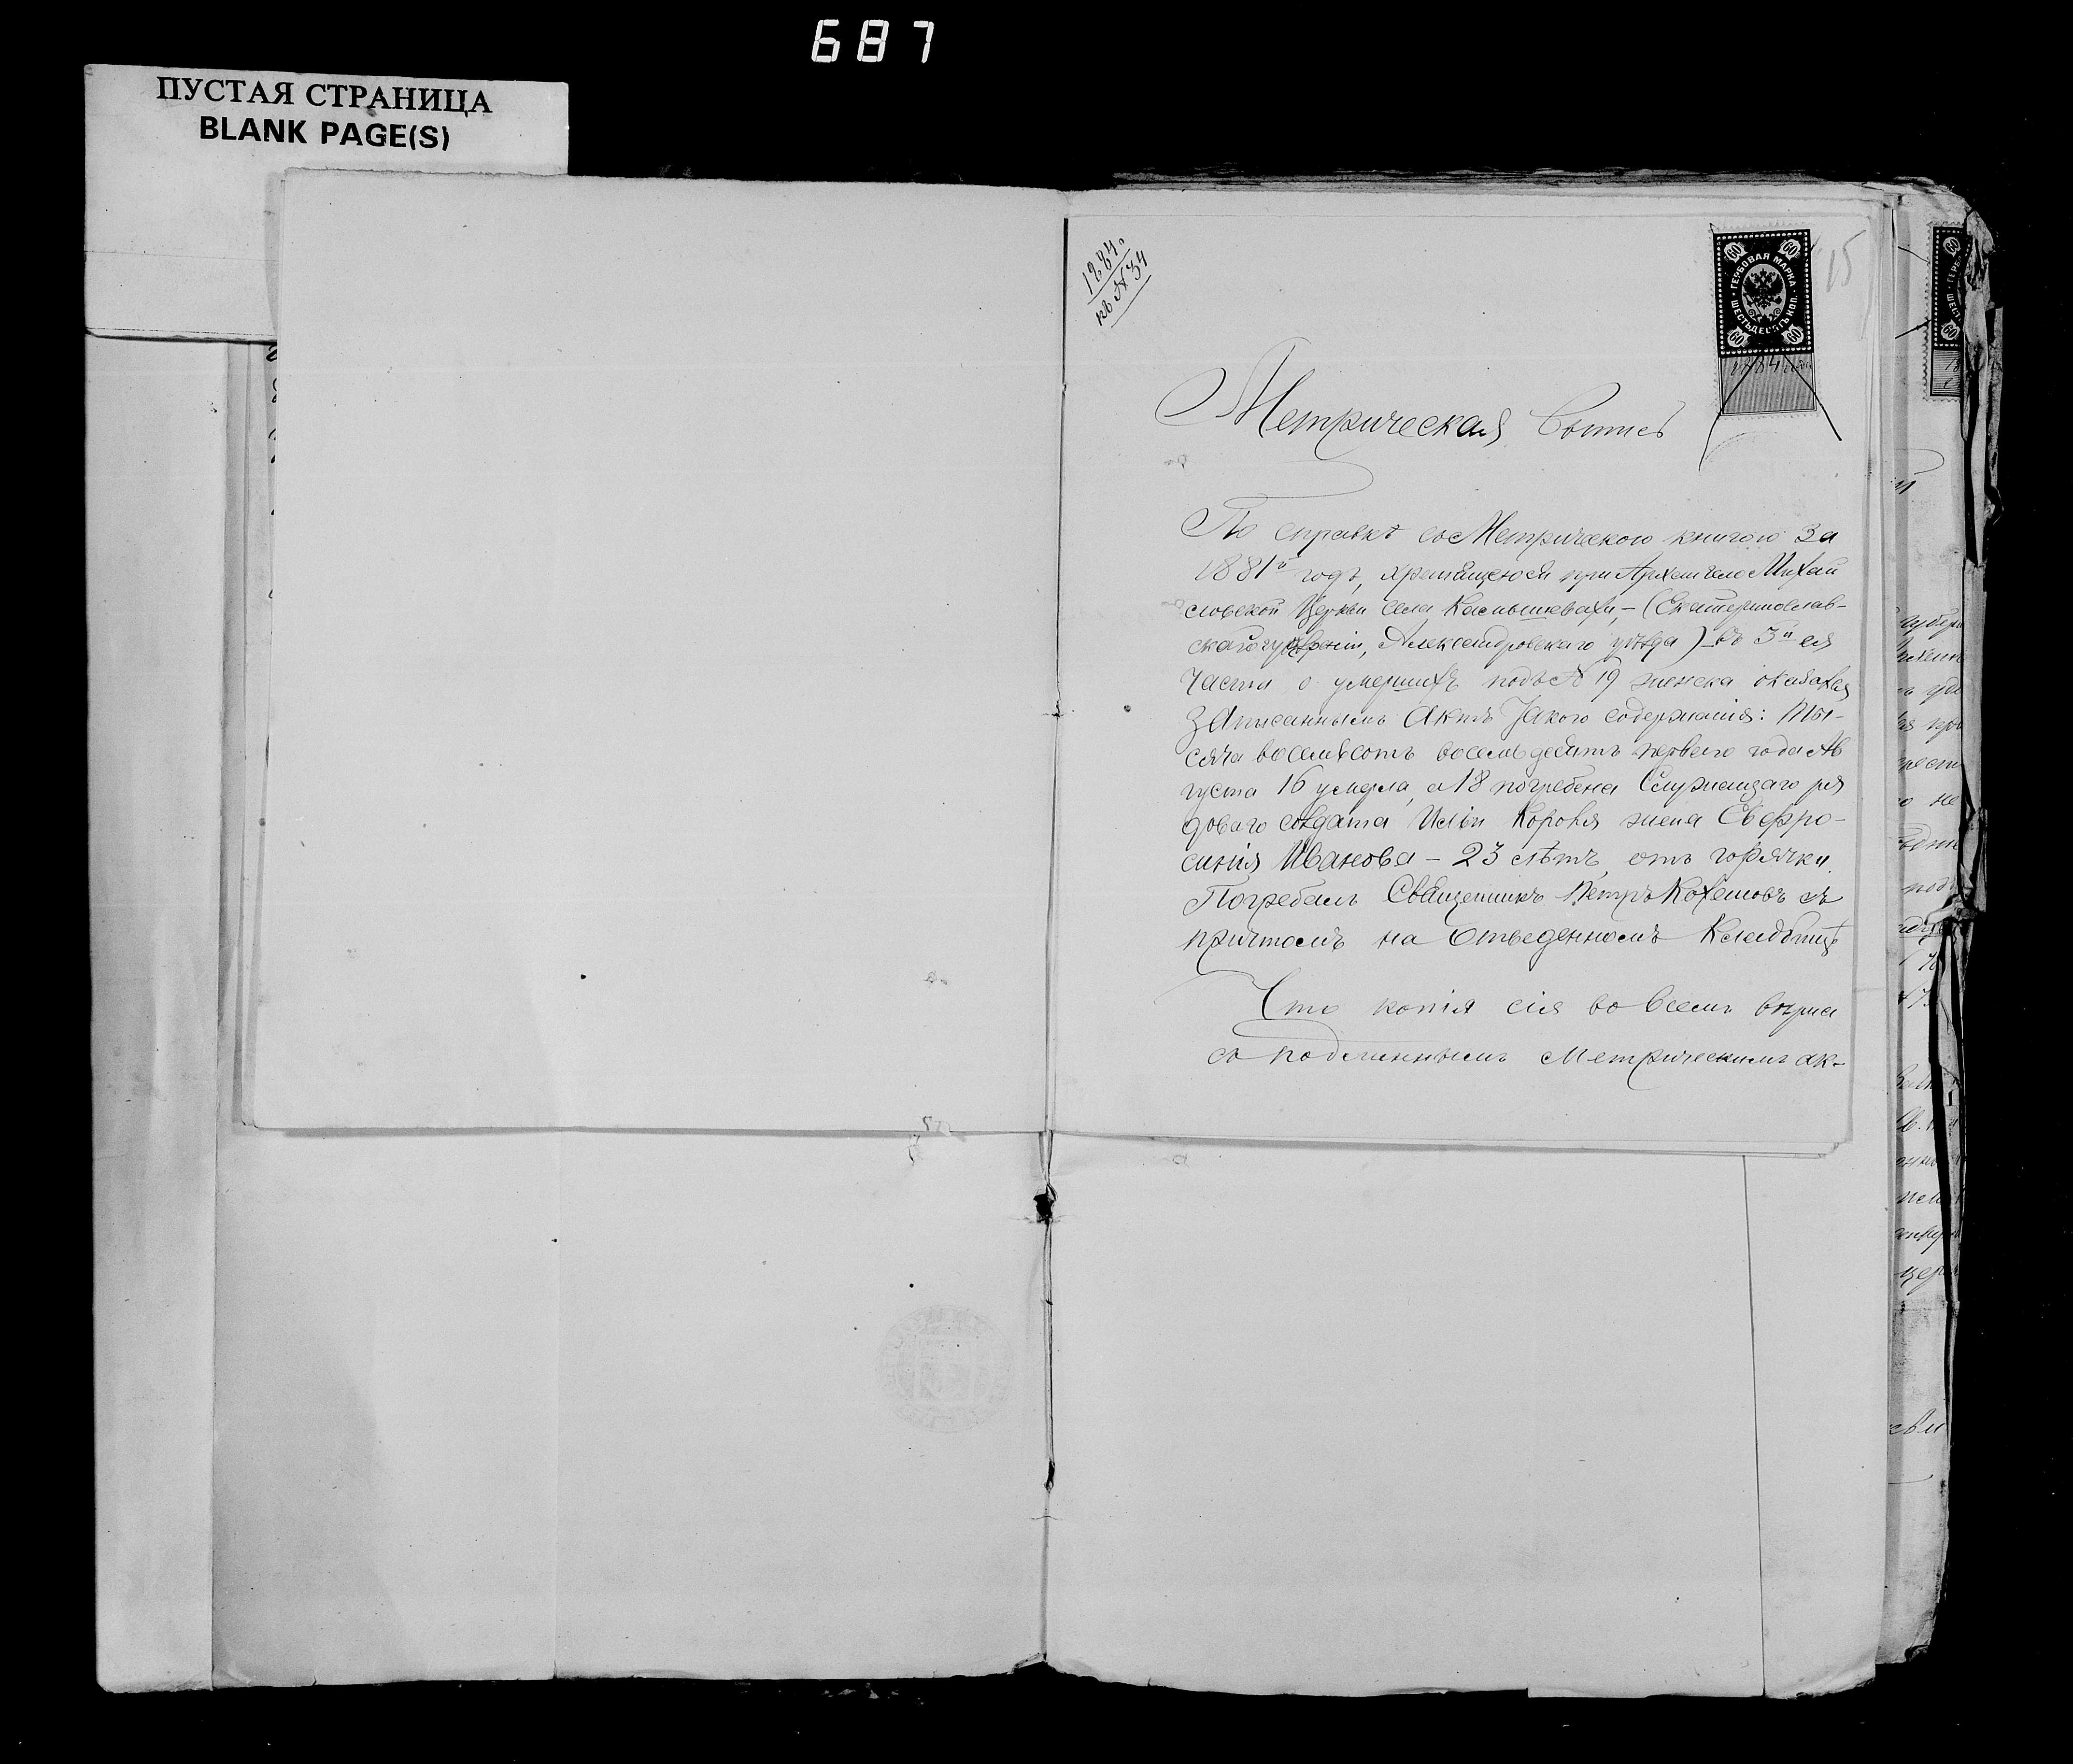 687
ПУСТАЯ СТРАНИЦА
BLANK PAGE(S)
1884.
къ № 34
15
60 60
ГЕРБОВАЯ МАРКА
ШЕСТЬДЕСЯТЪ КОП.
60 60
1884 года
Метрическая Выпись
По справкѣ съ Метрическою книгою за
1881й годъ, хранящеюся при Архангело Михай
ловской Церкви села Камышевахи, – (Екатеринослав-
скаго, Александровскаго уѣзда) – въ 3й ея
части о умершихъ подъ № 19 женска оказался
записаннымъ Актъ такого содержанія: Ты-
сяча восемьсотъ восемьдесятъ перваго года Ав
густа 16 умерла, а 18 погребена Служащаго ря
доваго солдата Иліи Коровя жена Евфро-
синія Иванова – 23 лѣтъ, отъ горячки.
Погребалъ Священникъ Петръ съ
причтомъ на Отведенномъ Кладбищѣ
Что копія сія во всемъ вѣрна
съ подлиннымъ Метрическимъ ак-